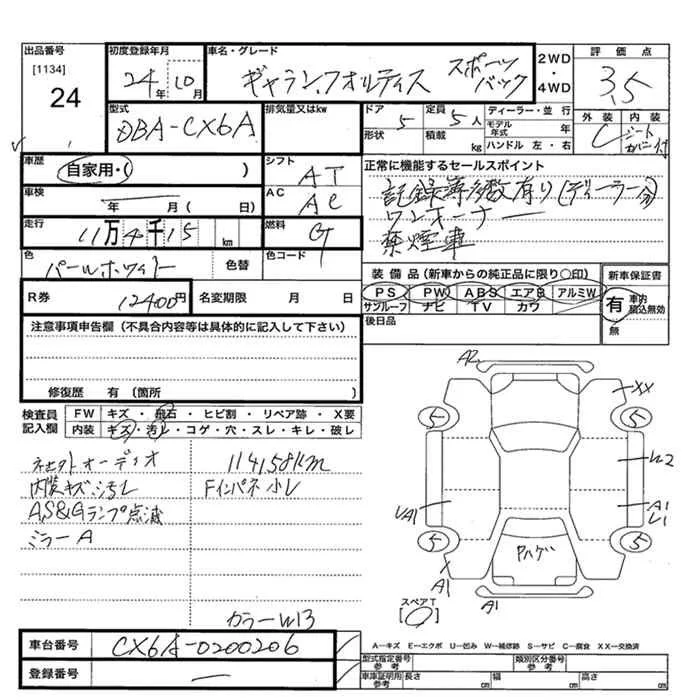 出品番号
[1134]
24
初度登録年月
24年10月
車名・グレード
ギャランフォルティス スポーツバック
2WD
・
4WD
評価点
3.5
型式
DBA-CX6A
排気量又はkw
ドア
5
形状
定員
5人
積載
kg
ディーラー・並行
モデル年式
年
ハンドル 左・右
外装
C
内装
シートカバー付
車歴
自家用・( )
シフト
AT
車検
年 月(日)
AC
AC
走行
11万4千15
km
燃料
G
色
パールホワイト
色替
色コード
正常に機能するセールスポイント
記録簿多数有り(ディーラー分)
ワンオーナー
禁煙車
R券
12400円
名変期限 月 日
装備品(新車からの純正品に限り○印)
PS PW ABS エアB アルミW
サンルーフ ナビ TV カワ
後日品
新車保証書
有
車内積込無効
無
注意事項申告欄(不具合内容等は具体的に記入して下さい)
修復歴 有(箇所
検査員記入欄
FW キズ・飛石・ヒビ割・リペア跡・X要
内装 キズ・汚レ・コゲ・穴・スレ・キレ・破レ
社外オーディオ
114158km
内装キズ汚レ
Fインパネ小レ
AS&Gランプ点滅
ミラーA
カラーW13
A2
XX
5
5
W2
UA1
A1
U1
5
5
X
A1
Pハゲ
A1
スペアT
車台番号
CX6A-0200206
登録番号
A―キズ E―エクボ U―凹み W―補修跡 S―サビ C―腐食 XX―交換済
型式指定番号
参考
類別区分番号
参考
車庫証明用
参考
長さ
cm
幅
cm
高さ
cm